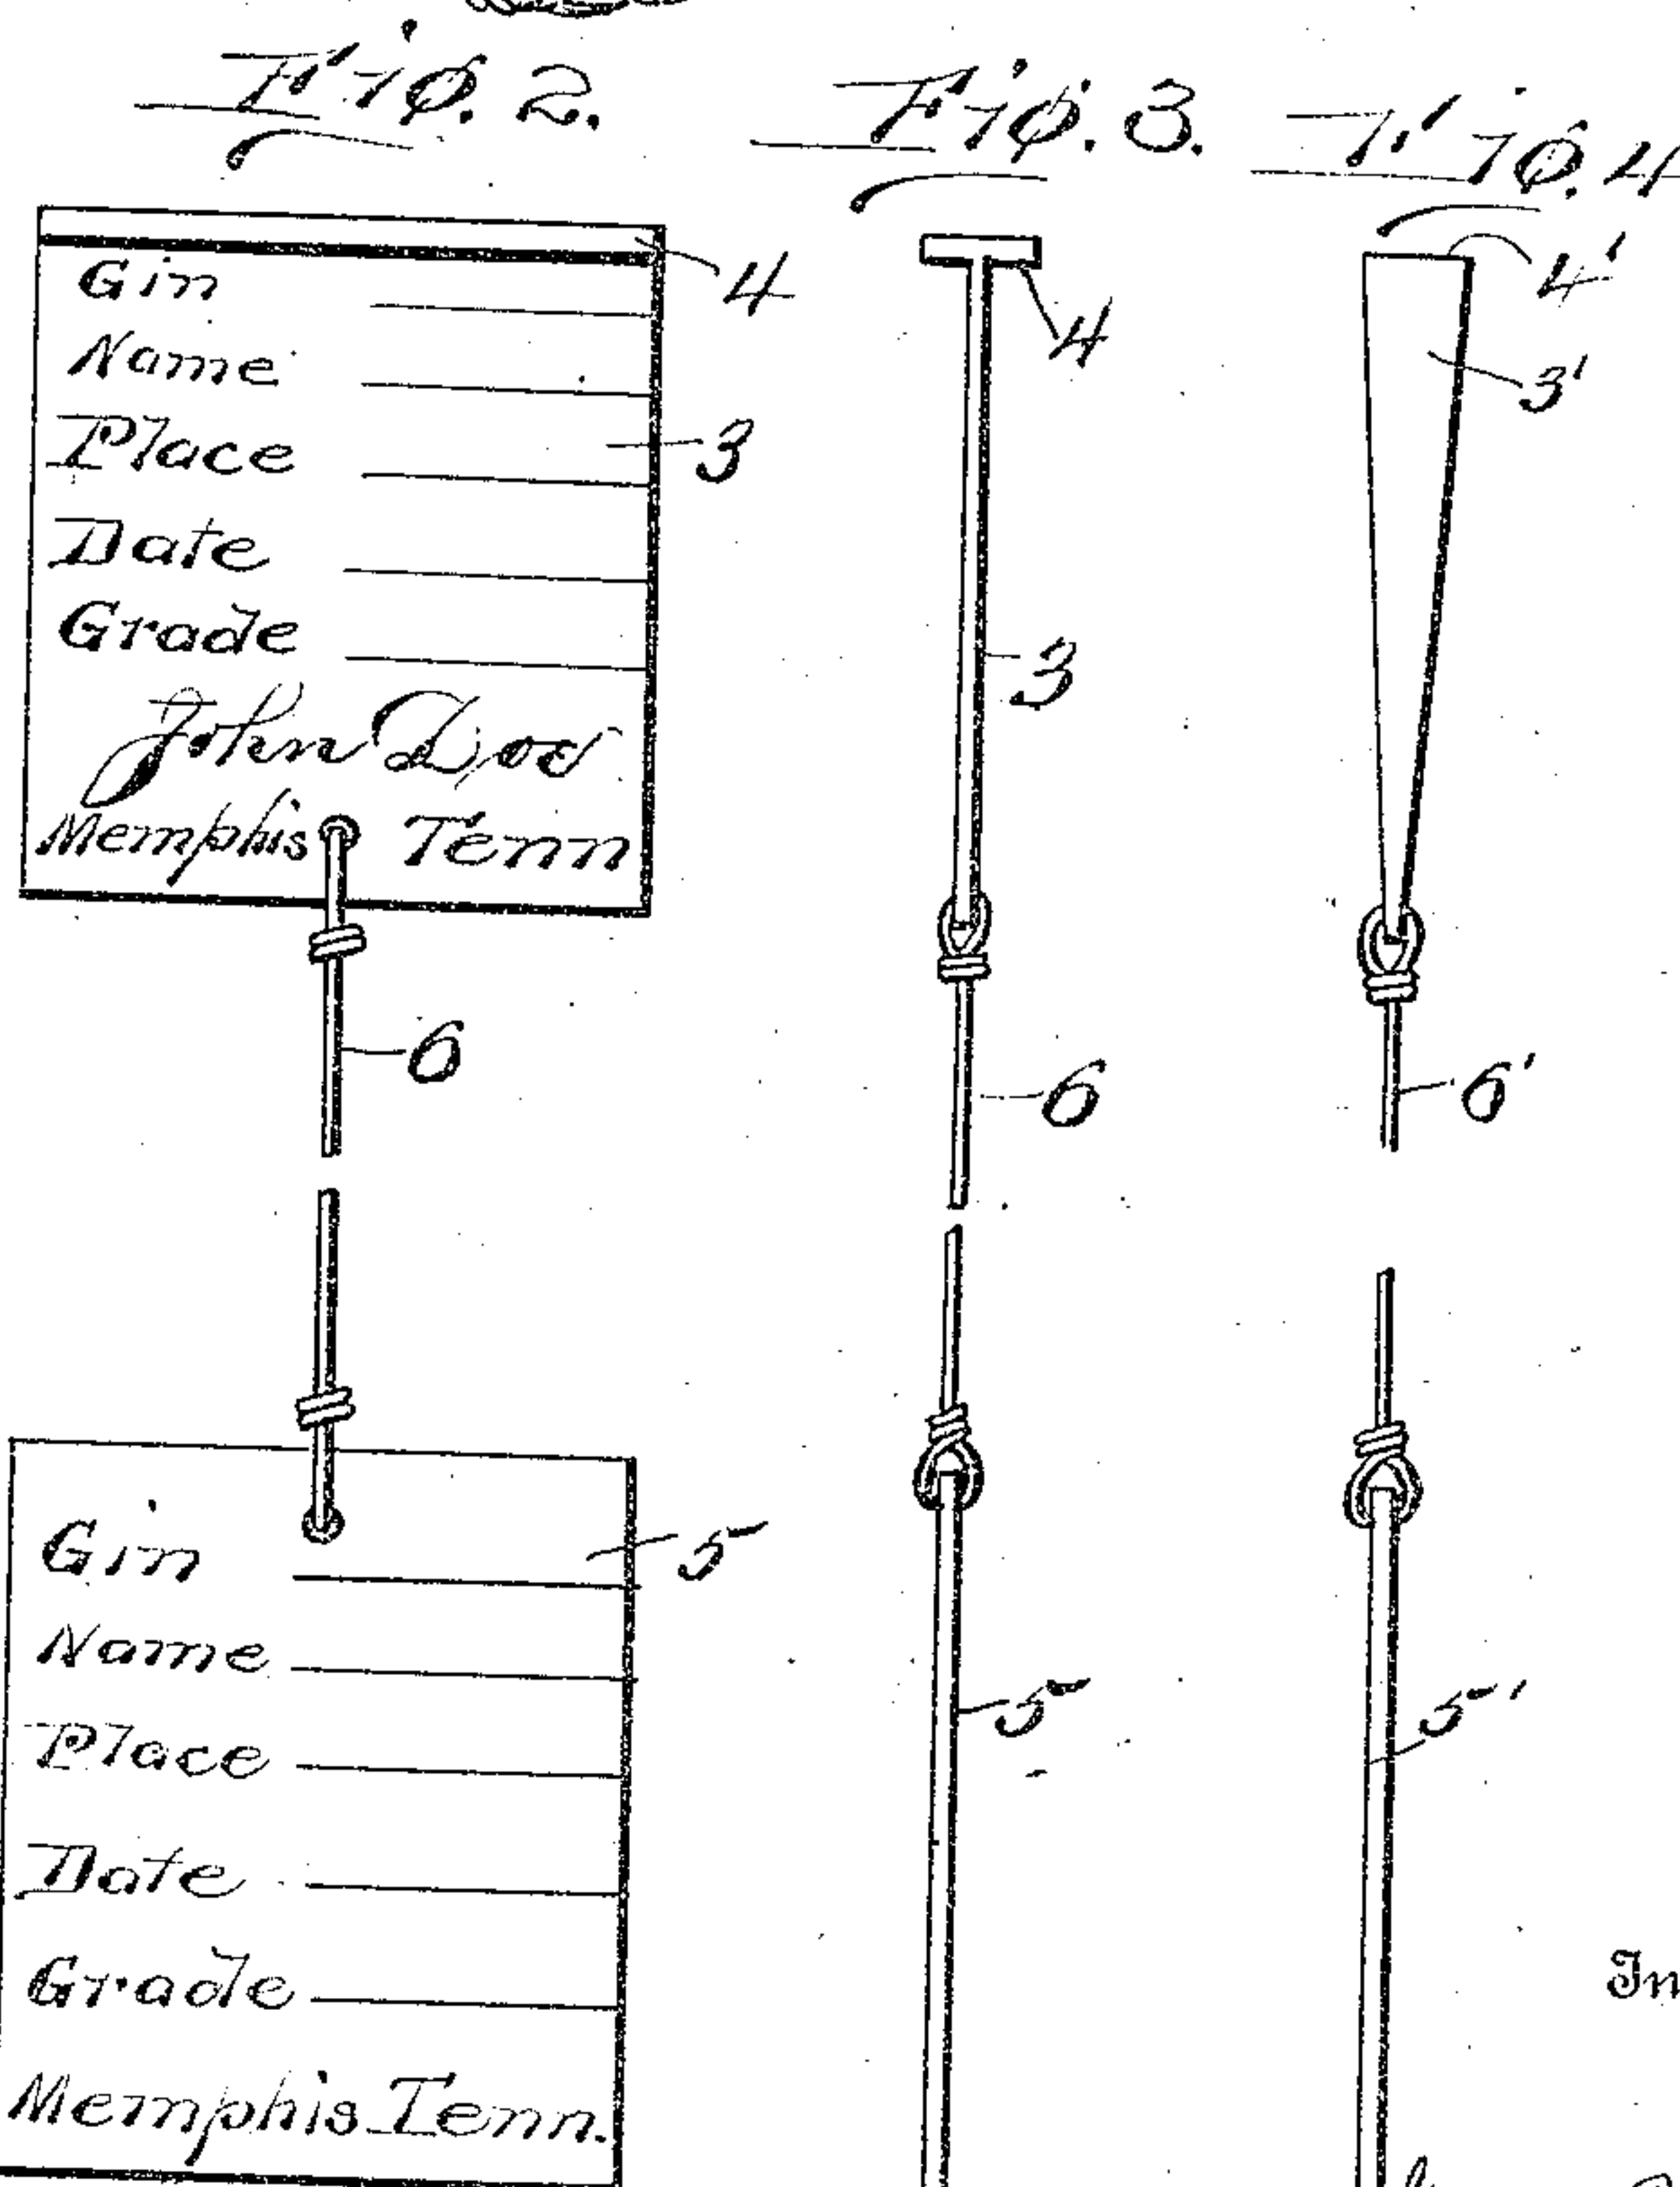 Fig. 2.
Fig. 3.
Fig. 4
Gin
Name
Place
Date
Grade
John Doe
Memphis Tenn
4
3
6
Gin
Name
Place
Date
Grade
Memphis Tenn.
5
4
3
6
5
4'
3'
6'
5'
In